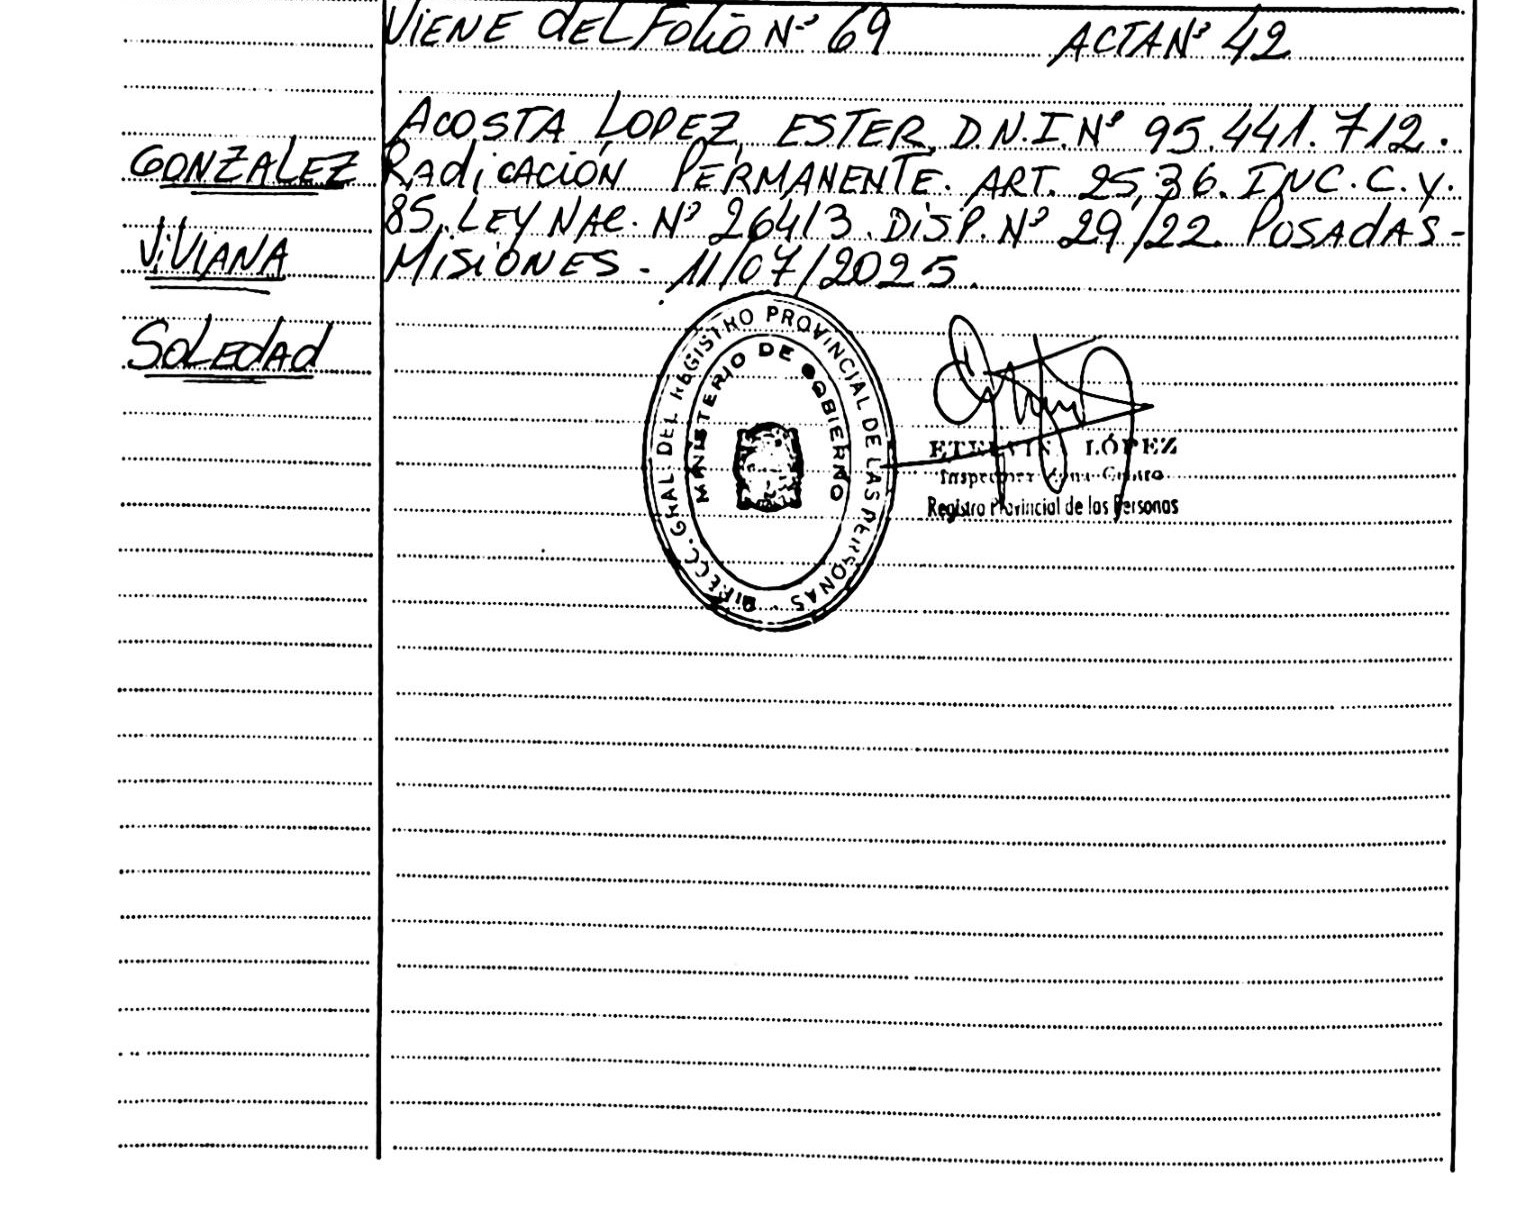 VIENE del Folio Nº 69 ACTA Nº 42
ACOSTA LOPEZ, ESTER, D.N.I. Nº 95.441.712.
Radicación PERMANENTE. ART. 25, 36. INC. C. y.
85. LEY NAC. Nº 26413. DISP. Nº 29/22. POSADAS-
MISIONES - 11/07/2025.
GONZALEZ
VIVIANA
SOLEDAD
DIRECC. GRAL. DEL REGISTRO PROVINCIAL DE LAS PERSONAS
MINISTERIO DE GOBIERNO
LÓPEZ
Registro Provincial de las Personas